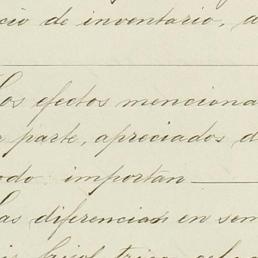 cio de inventario, a
Los efectos menciona
parte, apreciados d
odo importan
Las diferencias en sem